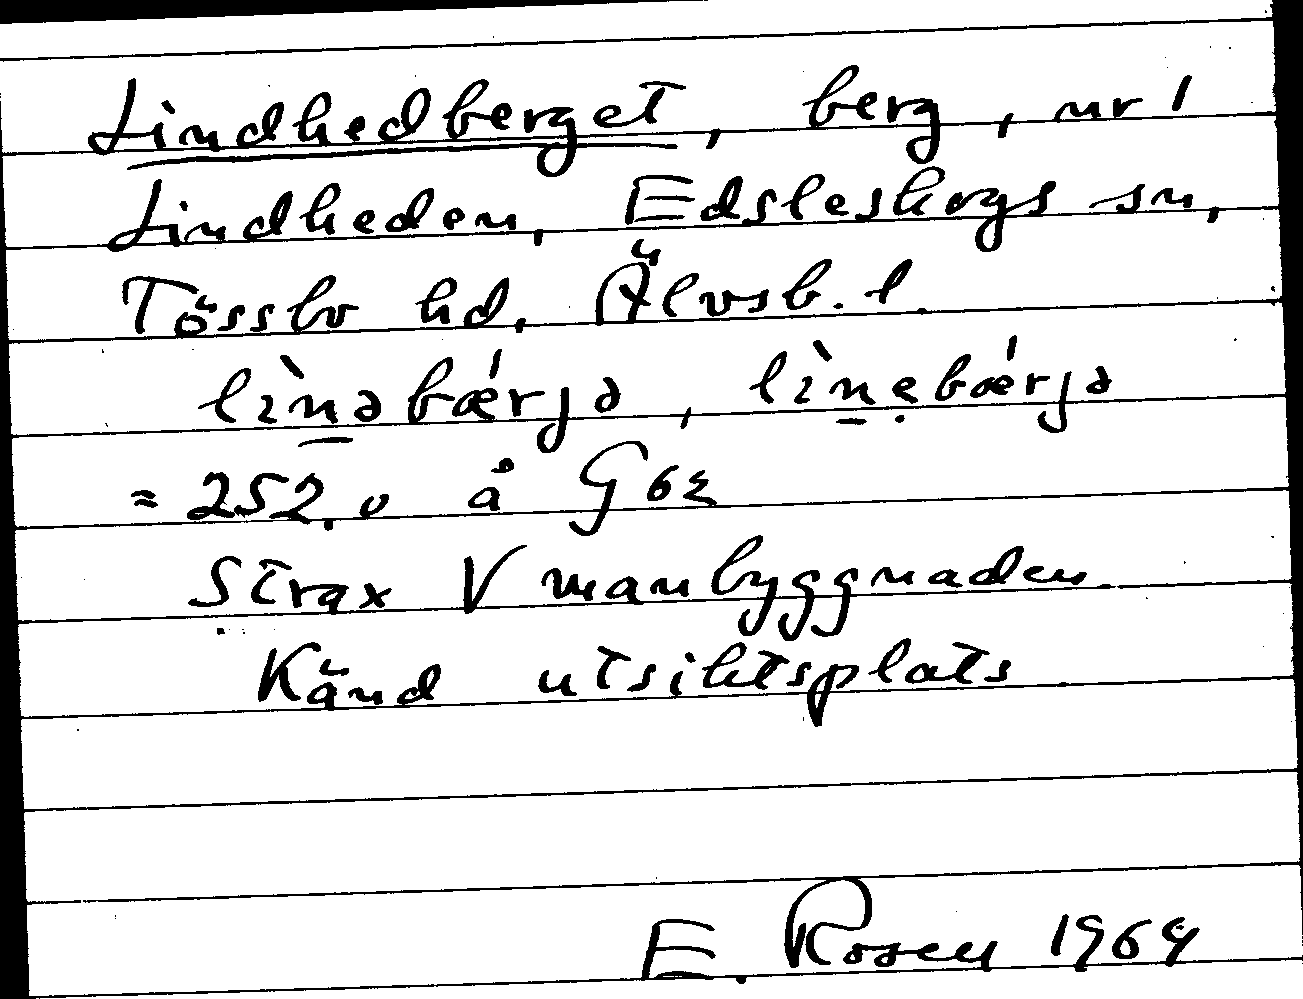 Lindhedberget, berg, nr 1
Lindheden, Edsleskogs sn,
Tössbo hd. Älvsb. l.
lìnəbǽrjə, lìnebǽrjə
= 252,0 å G62
Strax V manbyggnaden
Känd utsiktsplats
E. Rosen 1964